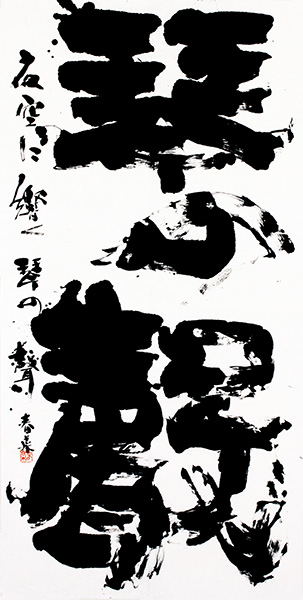 琴の聲
夜空に響く琴の聲